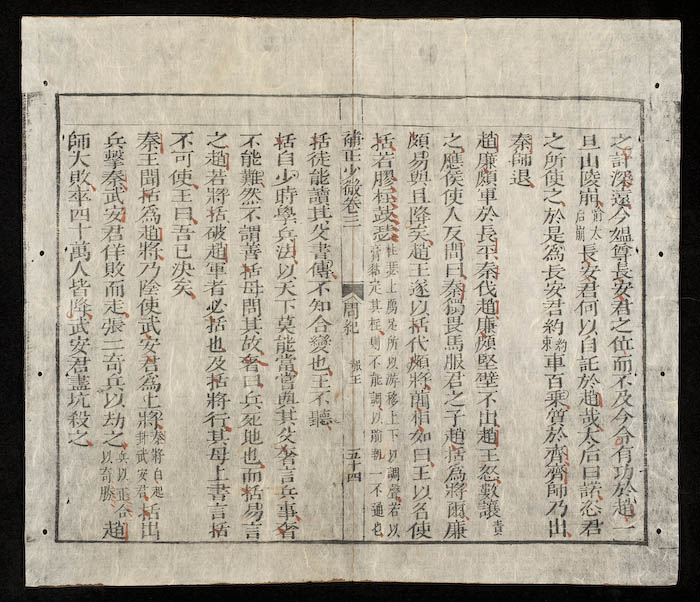 之計深遠今媼尊長安君之位而不及今令有功於趙一
旦山陵崩太后崩長安君何以自託於趙哉太后曰諾恣君
之所使之於是為長安君約約束車百乘質於齊齊師乃出
秦師退
趙廉頗軍於長平秦伐趙廉頗堅壁不出趙王怒數讓責
之應侯使人反間曰秦獨畏馬服君之子趙括為將爾廉
頗易與且降矣趙王遂以括代頗將藺相如曰王以名使
括若膠柱鼓瑟柱瑟上鴈足所以游移上下以調聲若以膏黏定其柱則不能調以喻執一不通也
補正少微卷三 周紀 赧王 五十四
括徒能讀其父書傳不知合變也王不聽
括自少時學兵法以天下莫能當嘗與其父奢言兵事奢
不能難然不謂善括母問其故奢曰兵死地也而括易言
之趙若將括破趙軍者必括也及括將行其母上書言括
不可使王曰吾已決矣
秦王聞括為趙將乃陰使武安君為上將秦將白起封武安君括出
兵擊秦武安君佯敗而走張二奇兵以劫之兵以正合以奇勝趙
師大敗卒四十萬人皆降武安君盡坑殺之